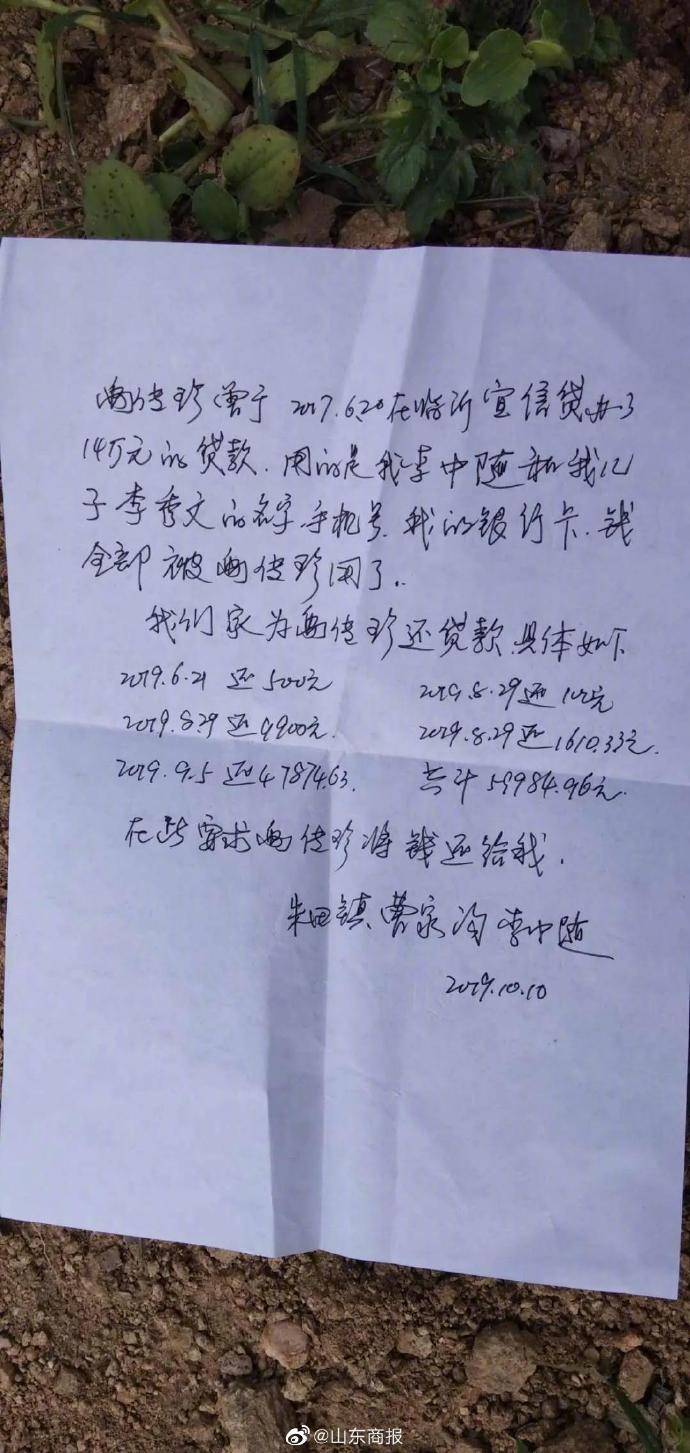 传珍曾于 2017.6.20在临沂宜信贷办了
14万元的贷款.用的是我李中随和我儿
子李秀文的名字.手机号.我的银行卡.钱
全部被 传珍用了.
我们家为 传珍还贷款.具体如下
2019.6.21 还500元 2019.8.29还100元
2019.8.29 还9900元. 2019.8.29还1610.33元.
2019.9.5 还47874.63. 共计59984.96元.
在此要求 传珍将钱还给我.
朱田镇曹家沟 李中随
2019.10.10
@山东商报